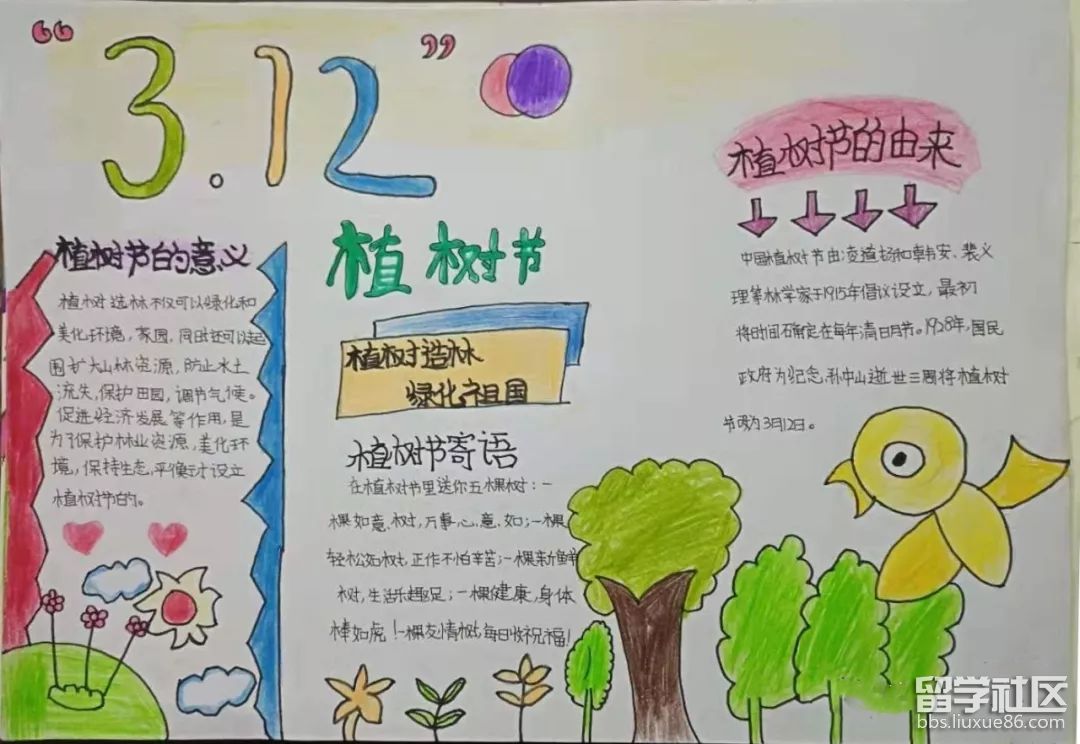 “3.12”
植树节的意义
植树造林不仅可以绿化和
美化环境，家园，同时还可以起
围扩大山林资源，防止水土
流失，保护田园，调节气候。
促进经济发展等作用，是
为了保护林业资源，美化环
境，保持生态，平衡讨设立
植树节的。
植树节
植树造林
绿化祖国
植树节寄语
在植树节里送你五棵树：一
棵如意树，万事心意如；一棵
轻松如树，工作不怕辛苦；一棵新鲜
树，生活乐趣足；一棵健康，身体
棒如虎！一棵友情树，每日收祝福！
植树节的由来
中国植树节由凌道扬和韩安、裴义
理等林学家于1915年倡议设立，最初
将时间确定在每年清明节。1928年，国民
政府为纪念孙中山逝世三周将植树
节改为3月12日。
留学社区
bbs.liuxue86.com